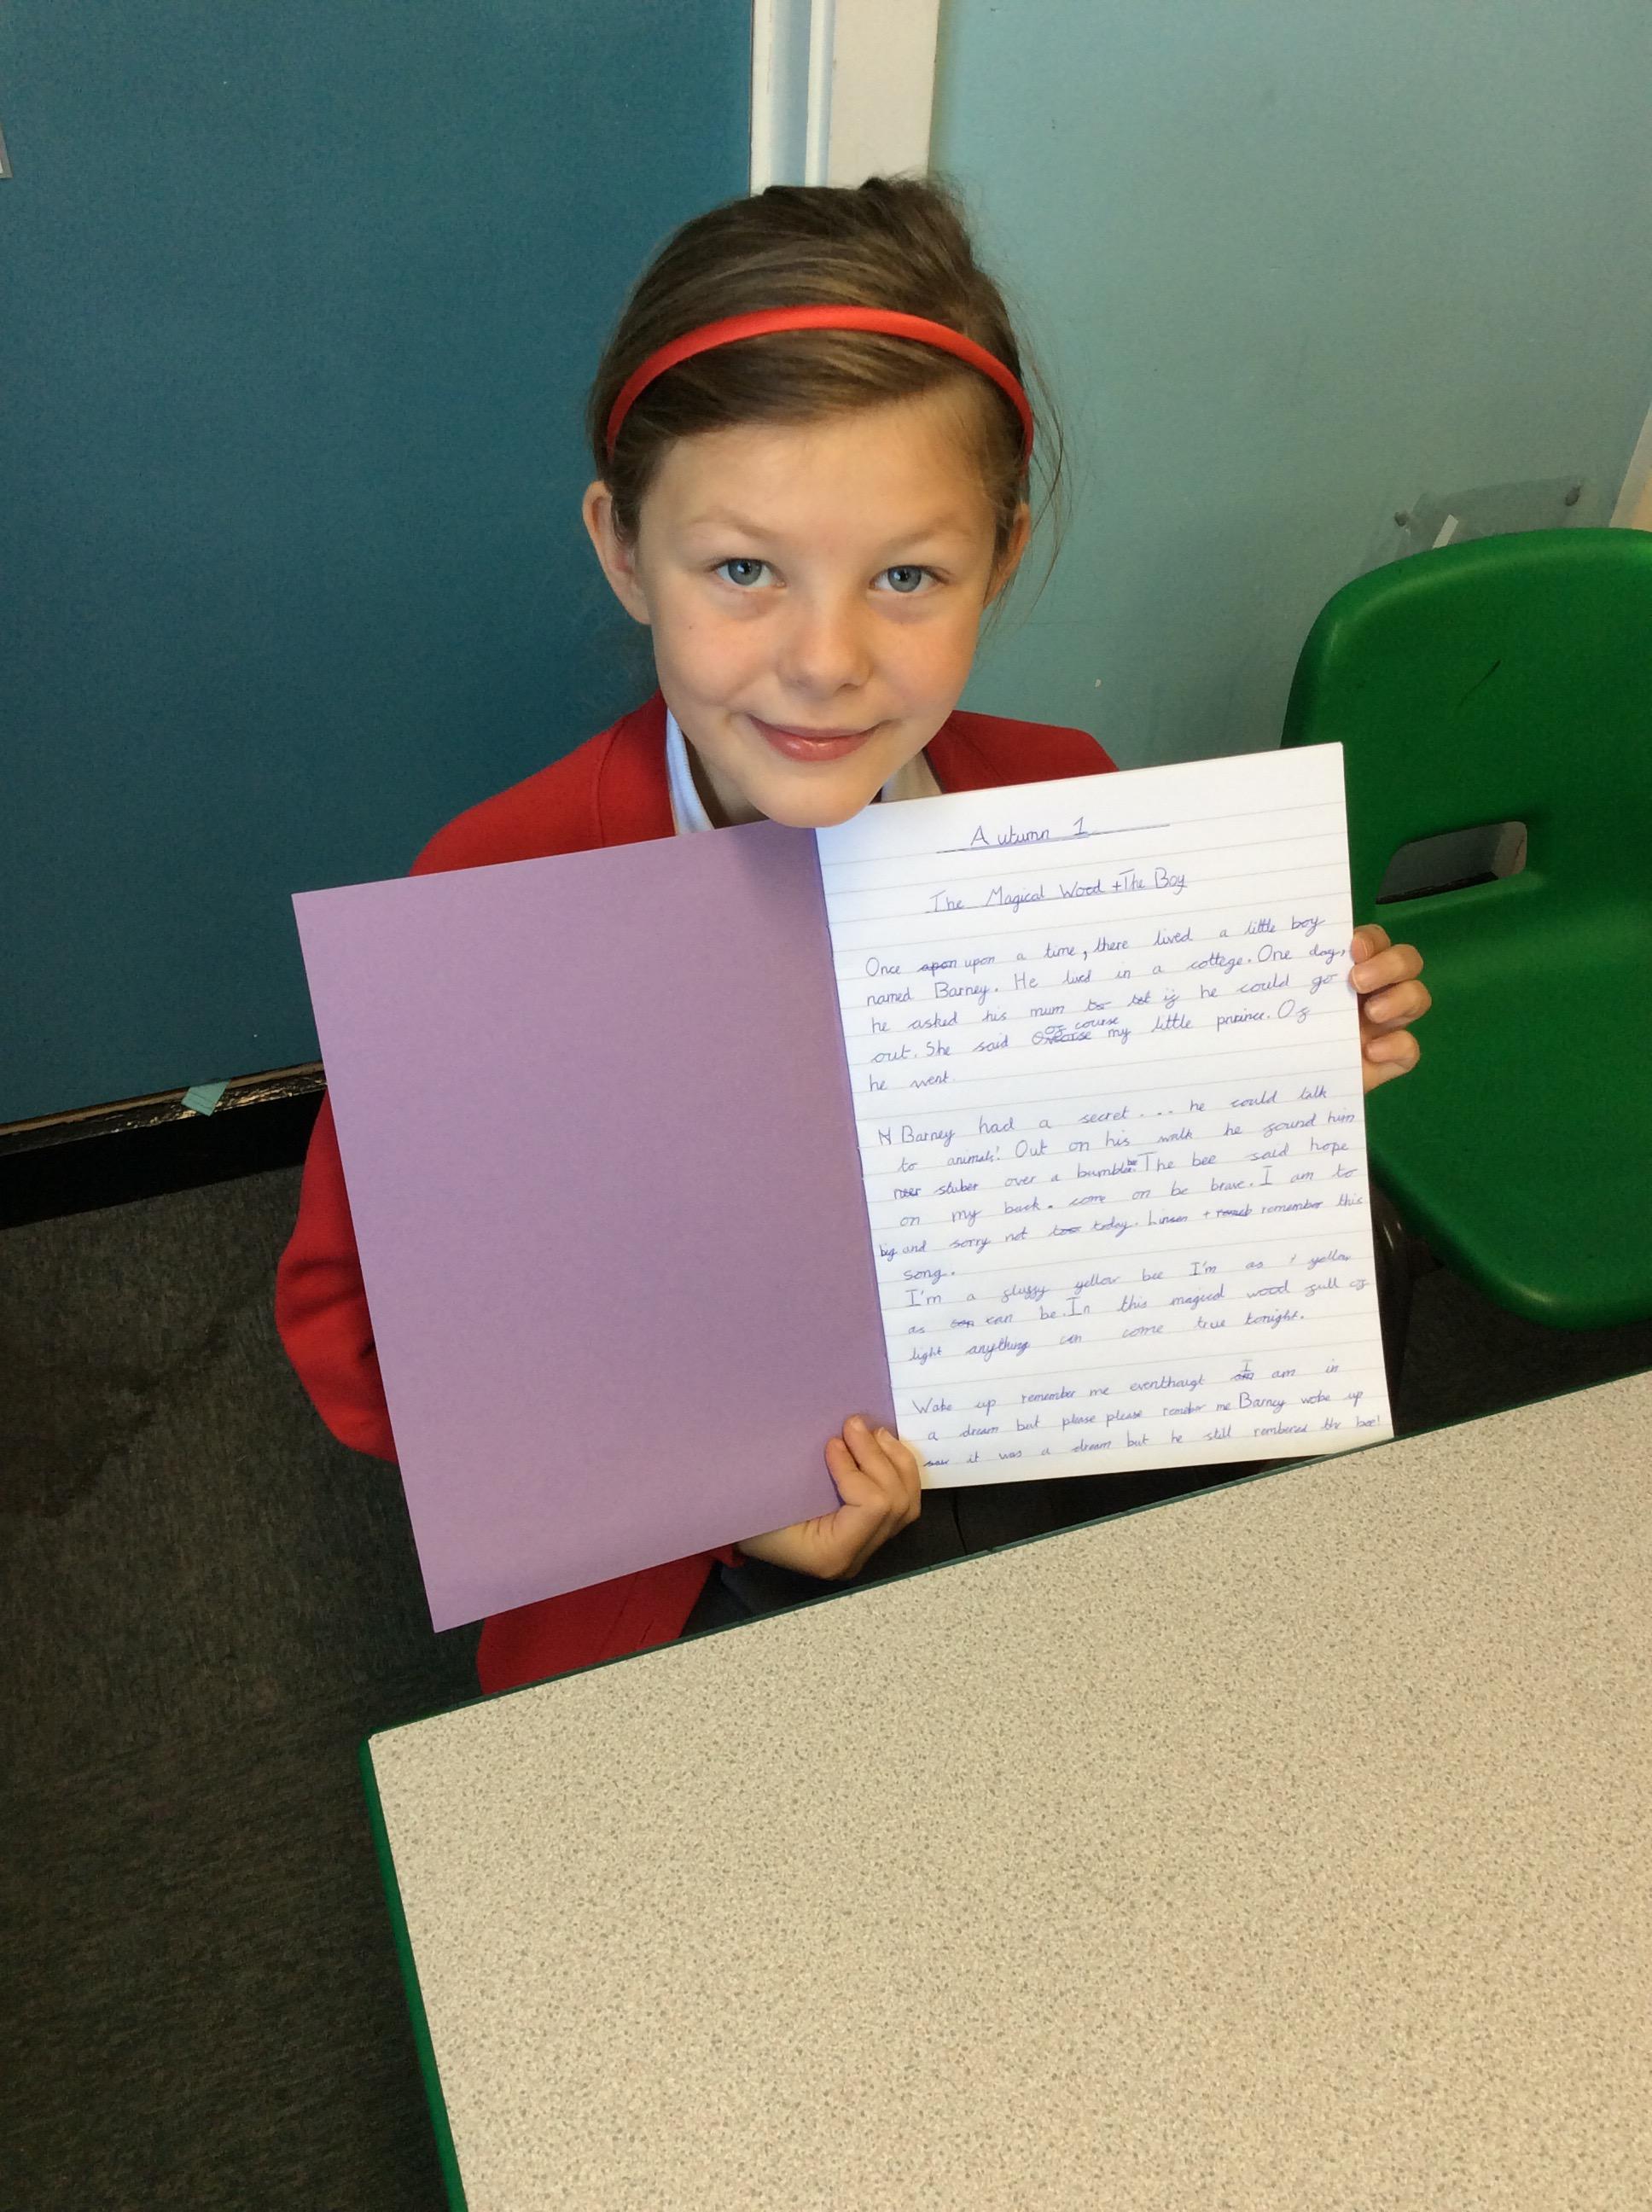 Autumn 1
The Magical Wood + The Boy
Once apon upon a time, there lived a little boy
named Barney. He lived in a cottege. One day,
he asked his mum to if he could go
of course
out. She said my little prince. Of
he went.
N Barney had a secret.... he could talk
to animals! Out on his walk he found him
sluber over a bumble be. The bee said hope
on my back. come on be brave. I am to
big and sorry not too today. Linsen + remember this
song.
I'm a fluffy yellow bee I'm as yellow
as can can be. In this magical wood full of
light anything can come true tonight.
I
Wake up remember me eventhougt am am in
a dream but please please rember me Barney woke up
saw it was a dream but he still rembered the bee!